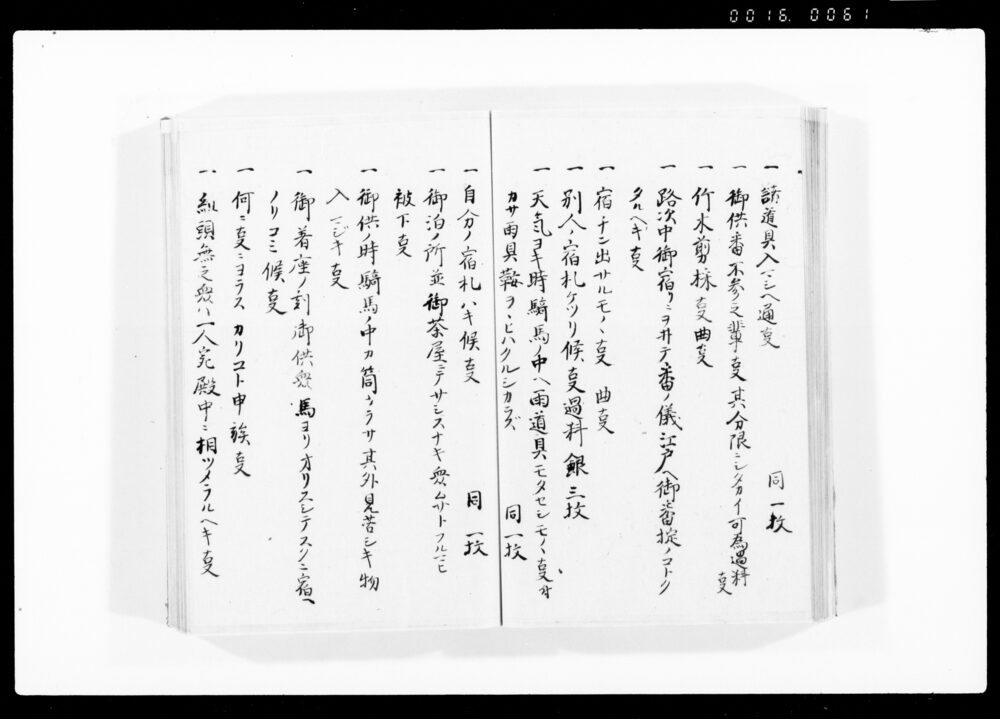 0016. 0061
一 諸道具入マシヘ通事 同一枚
一 御供番不参之輩事其分限ニシタカイ可為過料事
一 竹木剪採事曲事
一 路次中御宿リニヲヰテ番ノ儀江戸ヘ御番掟ノコトク
タルヘキ事
一 宿チン出サルモノヽ事 曲事
一 別人ノ宿札ケツリ候事過料銀三枚
一 天気ヨキ時騎馬ノ中ヘ雨道具モタセシモノヽ事付
カサ雨具鞍ヲヽヒハクルシカラズ 同一枚
一 自分ノ宿札ハキ候事 同一枚
一 御泊ノ所並御茶屋ニテサシスナキ衆ムサトフルマヒ
被下事
一 御供ノ時騎馬ノ中カ筒ナラサ其外見苦シキ物
入マジキ事
一 御着座ノ刻御供衆馬ヨリオリスシテスクニ宿ヘ
ノリコミ候事
一 何ニ事ニヨラス カリコト申族事
一 組頭無之衆ハ一人宛殿中ニ相ツメラルヘキ事